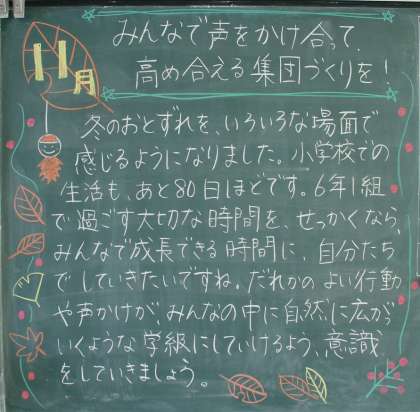 11月
みんなで声をかけ合って、
高め合える集団づくりを!
冬のおとずれを、いろいろな場面で
感じるようになりました。小学校での
生活も、あと80日ほどです。6年1組
で過ごす大切な時間を、せっかくなら、
みんなで成長できる時間に、自分たち
でしていきたいですね。だれかのよい行動
や声かけが、みんなの中に自然に広が
いくような学級にしていけるよう、意識
をしていきましょう。